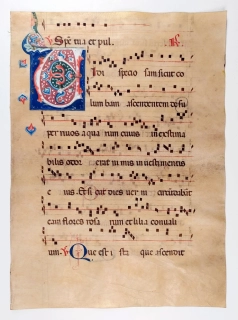 Spē tua et pul. R
Vidi specio sam sicut co
lum bam ascendentem desu
per riuos aqua rum cuius inextima
bilis odor erat nimis in uestimentis
e ius. Et sicut dies uer ni
eam flores rosa rum et lilia conuali
um. V Que est i sta que ascendit